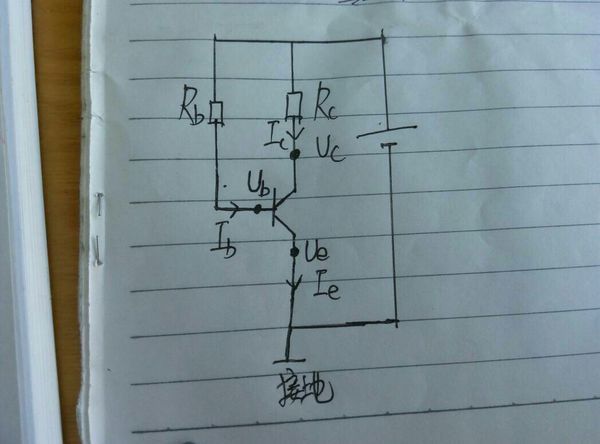 Rb
Rc
Ic
Uc
Ub
Ib
Ue
Ie
接地